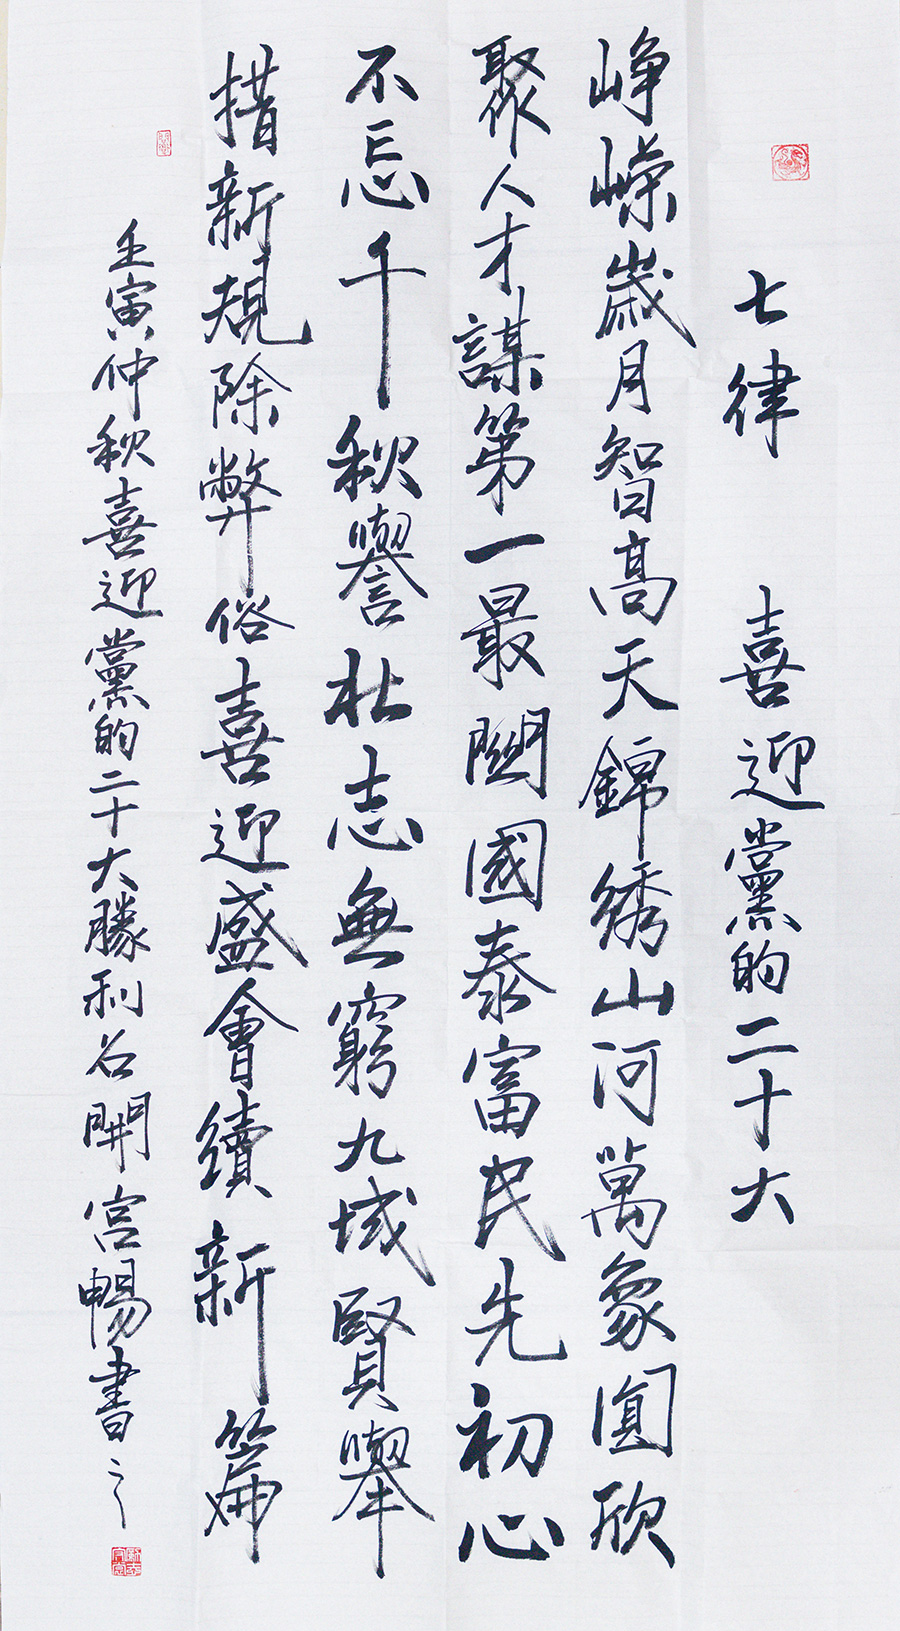 七律 喜迎黨的二十大
崢嶸歲月智高天錦綉山河萬象圓欣
聚人才謀第一最關國泰富民先初心
不忘千秋譽壯志無窮九域賢舉
措新規除弊俗喜迎盛會續新篇
壬寅仲秋喜迎黨的二十大勝利召開宫暢書之